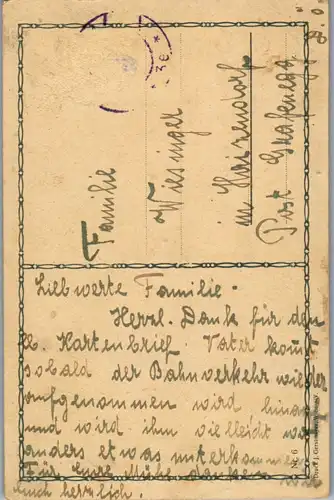 Familie
Wiesinger
in Haizendorf
Post Grafenegg
Lieb werte Familie -
Herzl. Dank für den
lb. Kartenbrief. Vater kommt
sobald der Bahnverkehr wieder
aufgenommen wird, hinaus
und wird ihm vielleicht wer
anders etwas miterkommen
Für Eure Mühe danken wir
auch herzlich.